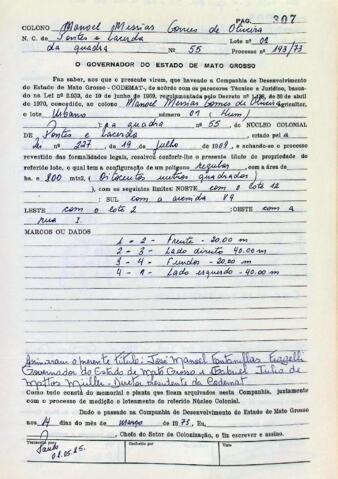 PAG. 307
COLONO Manoel Messias Gomes de Oliveira
N. C. de Pontes e Lacerda Lote nº 01
da quadra Nº 55 Processo nº 193/73
O GOVERNADOR DO ESTADO DE MATO GROSSO
Faz saber, aos que o presente virem, que havendo a Companhia de Desenvolvimento
do Estado de Mato Grosso - CODEMAT, de acôrdo com os pareceres Técnico e Jurídico, basea-
do na Lei nº 2.933, de 19 de junho de 1969, regulamentada pelo Decreto nº 1.138, de 30 de abril
de 1970, concedido, ao colono Manoel Messias Gomes de Oliveira, agricultor,
o lote Urbano número 01 (Hum)
da quadra nº 55, DO NÚCLEO COLONIAL
DE Pontes e Lacerda, criado pel a
Lei nº 227, de 19 de julho de 1969, e achando-se o processo
revestido das formalidades legais, resolveu conferir-lhe o presente título de propriedade
do referido lote, o qual tem a configuração de um polígono regular, com a área de
ha. e 800 mts2, (Oitocentos metros quadrados)
), com os seguintes limites: NORTE com o lote 12
: SUL com a avenida 89
LESTE com o lote 2 : OESTE com a
rua I.
MARCOS OU DADOS
1 - 2 - Frente - 20.00 m
2 - 3 - Lado direito - 40.00 m
3 - 4 - Fundos - 20.00 m
4 - 1 - Lado esquerdo - 40.00 m
Assinaram o presente título: José Manoel Fontanillas Fragelli
Governador do Estado de Mato Grosso e Gabriel Julio de
Mattos Müller - Diretor Presidente da Codemat
Como tudo consta do memorial e planta que ficam arquivados nesta Companhia, juntamente
com o processo de medição e loteamento do referido Núcleo Colonial.
Dado e passado na Companhia de Desenvolvimento do Estado de Mato Grosso
aos 14 dias do mês de março de 1973, Eu,
, Chefe do Setor de Colonização, o fiz escrever e assino.
Transcrito por
Conferido por
Visto